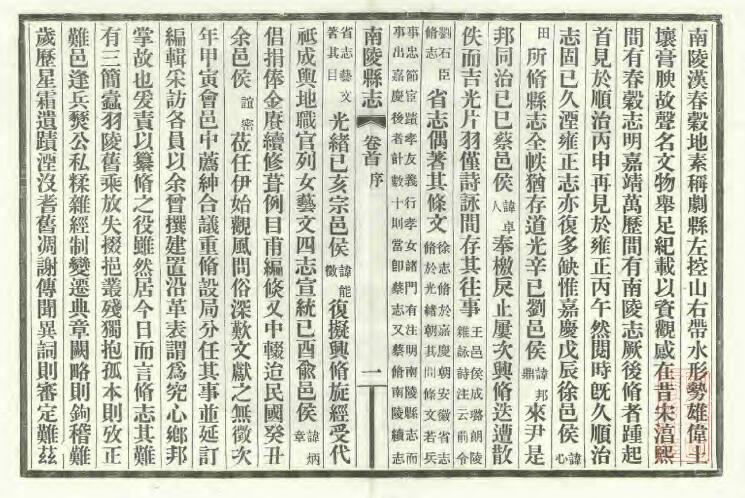 南陵漢春穀地素稱劇縣左控山右帶水形勢雄偉土
壤膏腴故聲名文物舉足紀載以資觀感在昔宋淳熙
間有春穀志明嘉靖萬歷間有南陵志厥後脩者踵起
首見於順治丙申再見於雍正丙午然閱時旣久順治
志固已久湮雍正志亦復多缺惟嘉慶戊辰徐邑侯諱心
田所脩縣志全帙猶存道光辛巳劉邑侯諱邦鼎來尹是
邦同治己巳蔡邑侯諱卓人奉檄戾止屢次興脩迭遭散
佚而吉光片羽僅詩詠間存其往事王邑侯成璐朗陵雜詠詩注云前令
劉石臣脩志省志偶著其條文徐志脩於嘉慶朝安徽省志脩於光緒朝其間條文若兵
事忠節宦蹟孝友義行孝女諸門有注明南陵縣志而事出嘉慶後者計數十則當卽蔡志又蔡脩南陵續志
南陵縣志 卷首 序 一
省志藝文著其目光緒己亥宗邑侯諱能徵復擬興脩旋經受代
祗成輿地職官列女藝文四志宣統己酉俞邑侯諱炳章
倡捐俸金賡續修葺例目甫編倏又中輟迨民國癸丑
余邑侯誼密蒞任伊始觀風問俗深歎文獻之無徵次
年甲寅會邑中薦紳合議重脩設局分任其事並延訂
編輯采訪各員以余曾撰建置沿革表謂為究心鄉邦
掌故也爰責以纂脩之役雖然居今日而言脩志其難
有三簡蠹羽陵舊乘放失掇挹叢殘獨抱孤本則攷正
難邑逢兵燹公私糅雜經制變遷典章闕略則鉤稽難
歲歷星霜遺蹟湮沒耆舊凋謝傳聞異詞則審定難茲